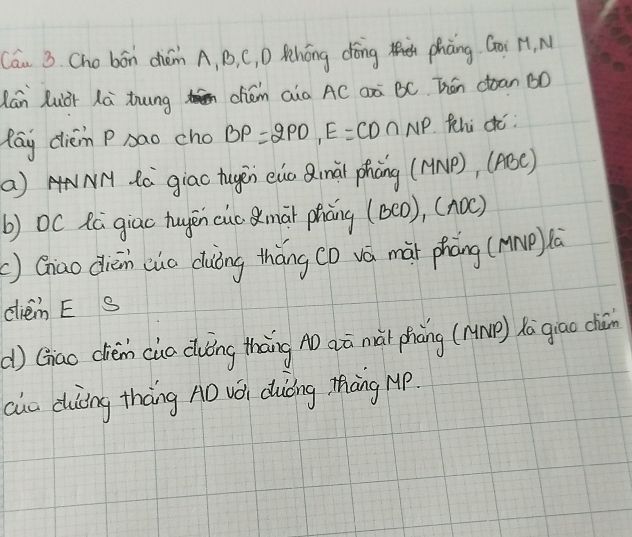 Câu 3. Cho bốn điểm A, B, C, D không đồng phẳng. Gọi M, N
lần lượt là trung điểm của AC và BC. Trên đoạn BD
lấy điểm P sao cho BP = 2PD, E = CD ∩ NP. Khi đó:
a) NM là giao tuyến của 2 mặt phẳng (MNP), (ABC)
b) DC là giao tuyến của 2 mặt phẳng (BCD), (ADC)
c) Giao điểm của đường thẳng CD và mặt phẳng (MNP) là
điểm E S
d) Giao điểm của đường thẳng AD và mặt phẳng (MNP) là giao điểm
của đường thẳng AD với đường thẳng MP.